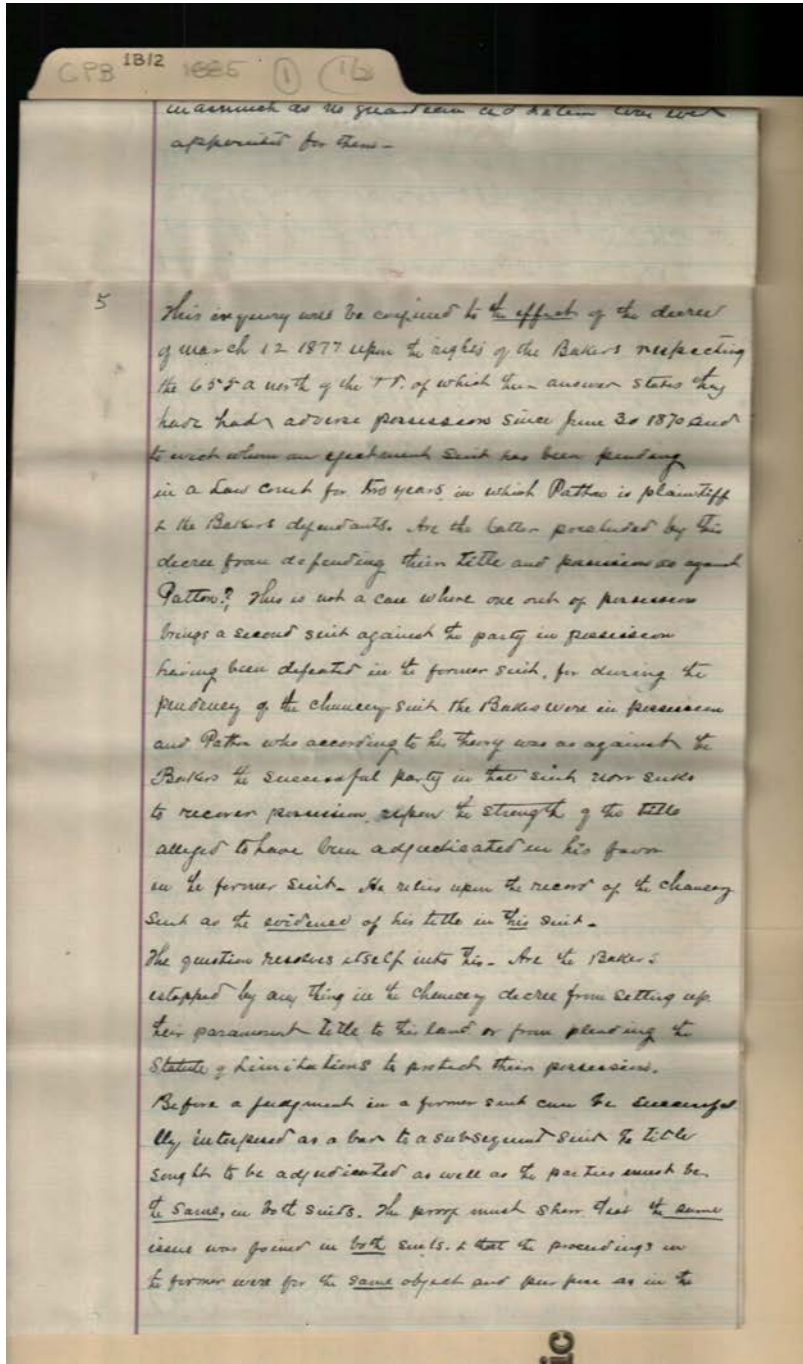 GPB 1B12 1885 ① (1b)
inasmuch as no guardian ad litem was ever
appointed for them -
5
This inquiry will be confined to the effect of the decree
of March 12 1877 upon the rights of the Bakers respecting
the 655 a north of the T.P. of which their answer states they
have had adverse possession since June 30 1870 and
to which whom an ejectment suit has been pending
in a Law court for two years, in which Patton is plaintiff
& the Bakers defendants. Are the latter precluded by this
decree from defending their title and possession as against
Patton? This is not a case where one out of possession
brings a second suit against the party in possession
having been defeated in the former suit, for during the
pendency of the chancery suit the Bakers were in possession
and Patton who according to his theory was as against the
Bakers the successful party in that suit now seeks
to recover possession, upon the strength of the title
alleged to have been adjudicated in his favor
in the former suit - He relies upon the record of the chancery
suit as the evidence of his title in this suit -
The question resolves itself into this - Are the Bakers
estopped by any thing in the chancery decree from setting up
their paramount title to this land or from pleading the
Statute of Limitations to protect their possession.
Before a judgment in a former suit can be successful
lly interposed as a bar to a subsequent suit the title
sought to be adjudicated as well as the parties must be
the same, in both suits. The proof must show that the same
issue was joined in both suits. & that the proceedings in
the former were for the same object and purpose as in the
ic